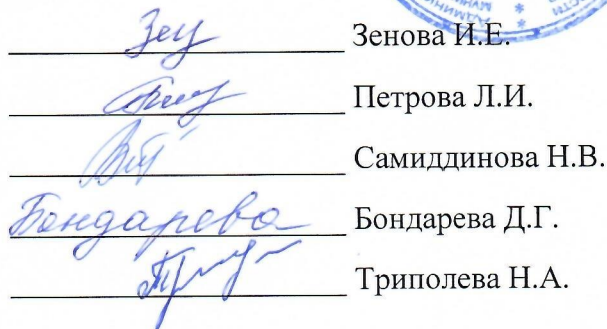 Зенова И.Е.
Петрова Л.И.
Самиддинова Н.В.
Бондарева Бондарева Д.Г.
Триполева Н.А.